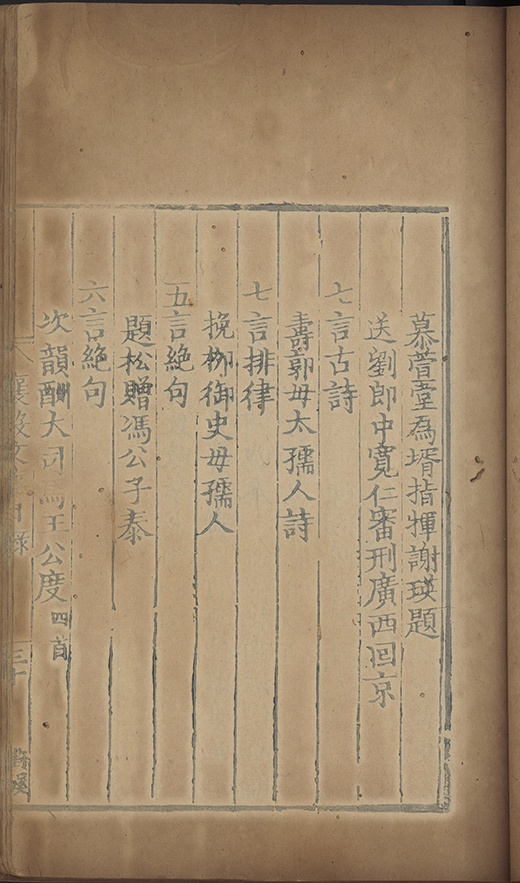 慕萱堂為壻指揮謝瑛題
送劉郎中寬仁審刑廣西回京
七言古詩
壽郭母太孺人詩
七言排律
挽柳御史母孺人
五言絕句
題松贈馮公子泰
六言絕句
次韻酬大司馬王公度四首
襄毅文集目錄 三十